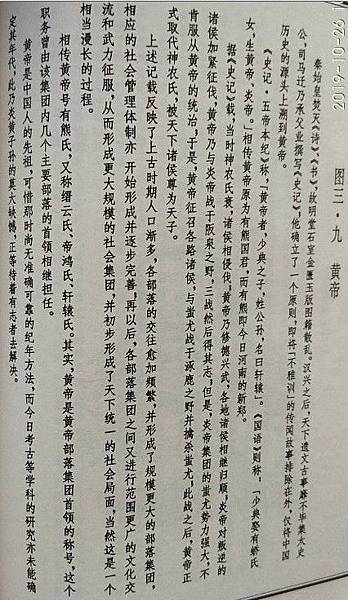 图三·九 黄帝
秦始皇焚灭《诗》《书》,故明堂石室金匮玉版图籍散乱。汉兴之后,天下遗文古事靡不毕集太史
公,司马迁乃承父业撰写《史记》,他确立了一个原则,即将“不雅训”的传闻故事排除在外,仅将中国
历史的源头上溯到黄帝。
《史记·五帝本纪》称,「黄帝者,少典之子,姓公孙,名曰轩辕」。《国语》则称,「少典娶有蟜氏
女,生黄帝、炎帝。」相传黄帝原为有熊国君,而有熊即今日河南的新郑。
据《史记》载,当时神农氏衰,诸侯相侵伐,黄帝乃修德兴武,各地诸侯相继归顺,炎帝对叛逆的
诸侯加紧征伐,黄帝乃与炎帝战于阪泉之野,三战然后得其志;但是,炎帝集团的蚩尤势力强大,不
肯服从黄帝的统治,于是,黄帝征召各路诸侯,与蚩尤战于涿鹿之野并擒杀蚩尤,此战之后,黄帝正
式取代神农氏,被天下诸侯尊为天子。
上述记载反映了上古时期人口渐多,各部落的交往愈加频繁,并形成了规模更大的部落集团,
相应的社会管理体制亦开始形成并逐步完善,再以后,各部落集团之间又进行范围更广的文化交
流和武力征服,从而形成更大规模的社会集团,并初步形成了天下统一的社会局面,当然这是一个
相当漫长的过程。
相传黄帝号有熊氏,又称缙云氏、帝鸿氏、轩辕氏。其实,黄帝是黄帝部落集团首领的称号,这个
职务曾由该集团内几个主要部落的首领相继担任。
黄帝是中国人的先祖,可惜那时尚无准确可靠的纪年方法,而今日考古等学科的研究亦未能确
定其年代,此乃炎黄子孙的莫大缺憾,正等待着有志者去解决。
2019-10-26